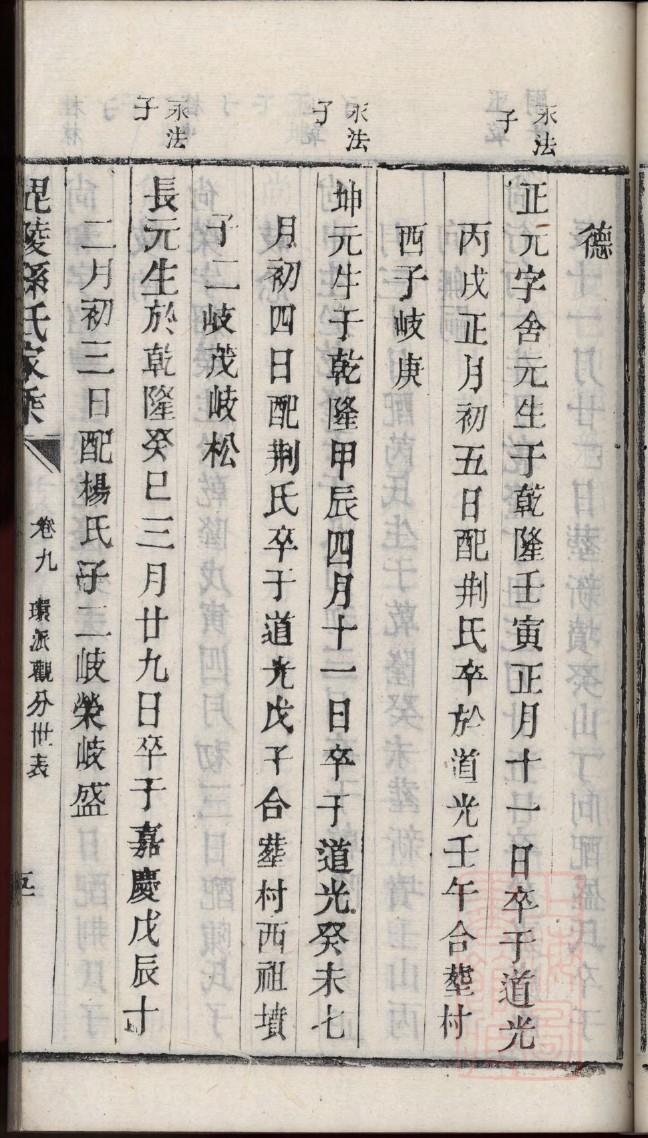 德
永法
子
正元字舍元生于乾隆壬寅正月十一日卒于道光
丙戌正月初五日配荆氏卒於道光壬午合塟村
西子岐庚
永法
子
坤元生于乾隆甲辰四月十一日卒于道光癸未七
月初四日配荆氏卒于道光戊子合塟村西祖墳
子二岐茂岐松
永法
子
長元生於乾隆癸巳三月廿九日卒于嘉慶戊辰十
二月初三日配楊氏子二岐榮岐盛
毘陵孫氏家乘
卷九
環派觀分世表
五